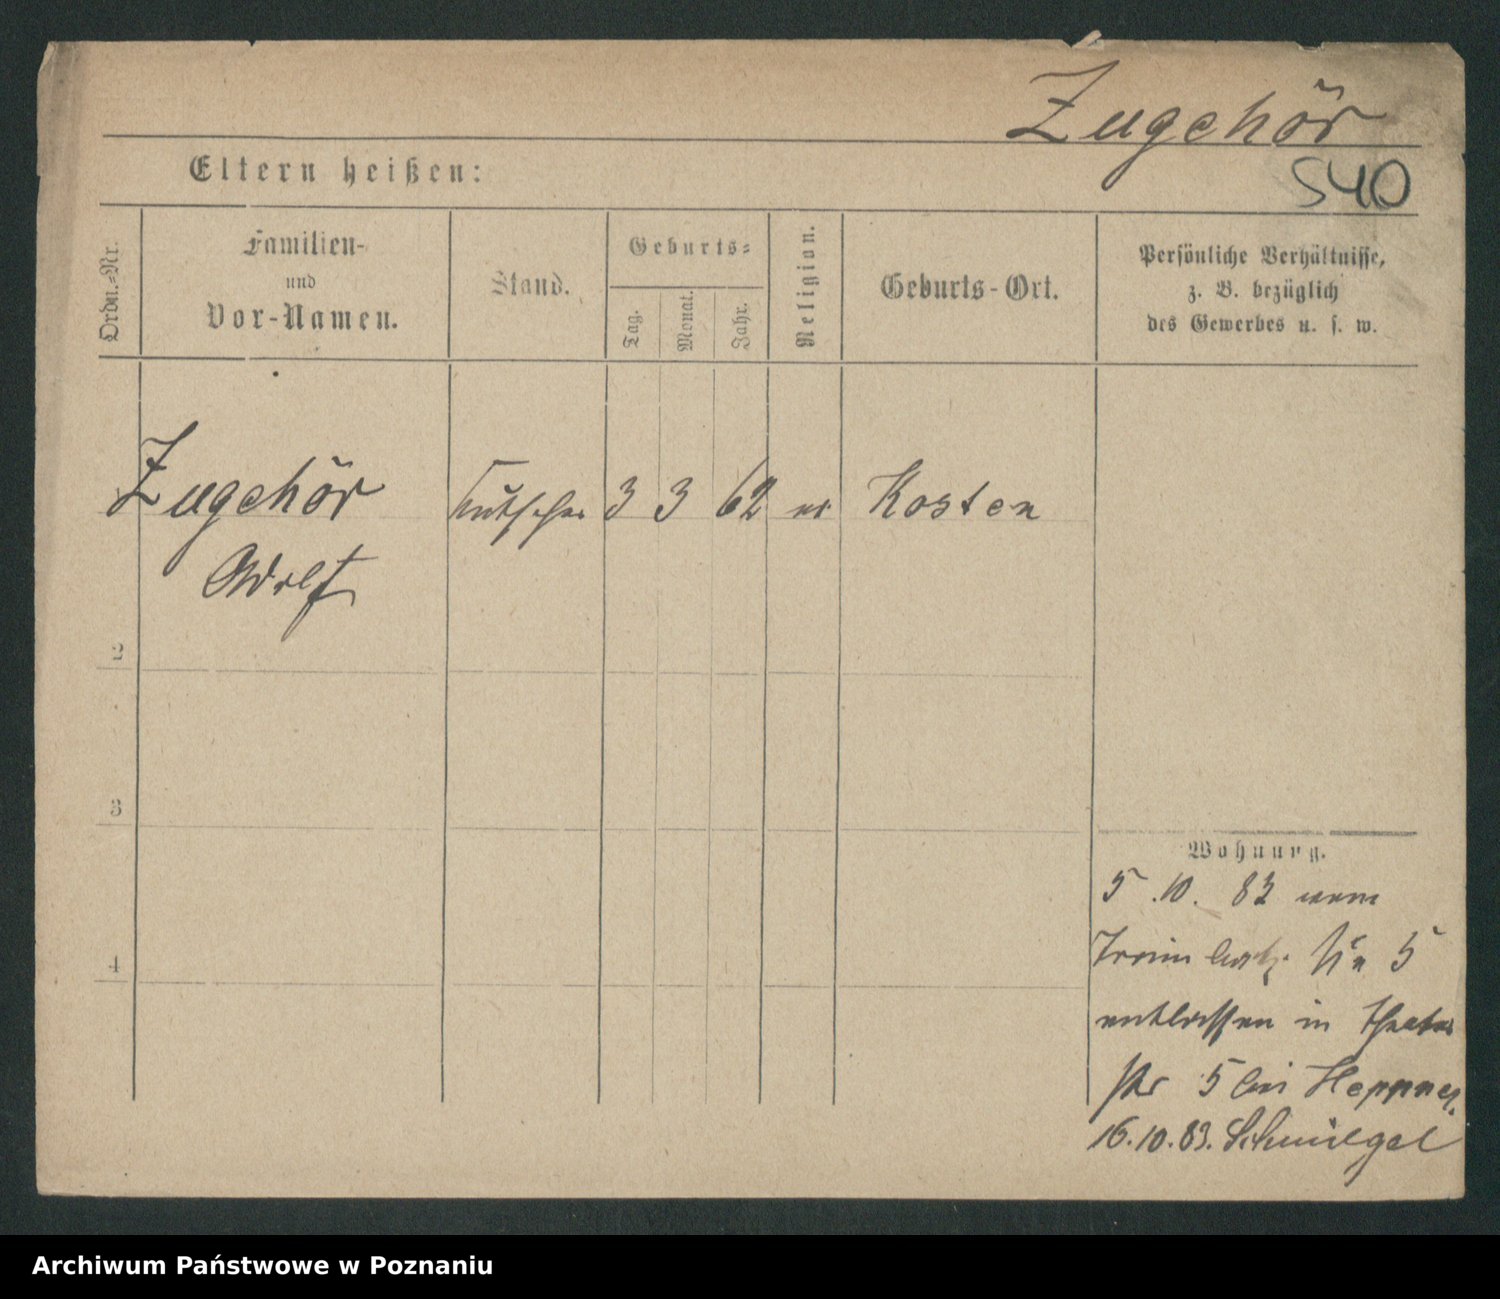 Zugehör
Eltern heißen:
540
Ordn.-Nr.
Familien-
und
Vor-Namen.
Stand.
Geburts-
Tag.
Monat.
Jahr.
Religion.
Geburts-Ort.
Persönliche Verhältnisse,
z. B. bezüglich
des Gewerbes u. s. w.
Zugehör Kutscher 3 3 62 ev Kosten
Adolf
2
3
4
Wohnung.
5.10.83 vom
Train Nr 5
entlassen in Theater
Str 5 bei Heppner
16.10.83. Schmiegel
Archiwum Państwowe w Poznaniu